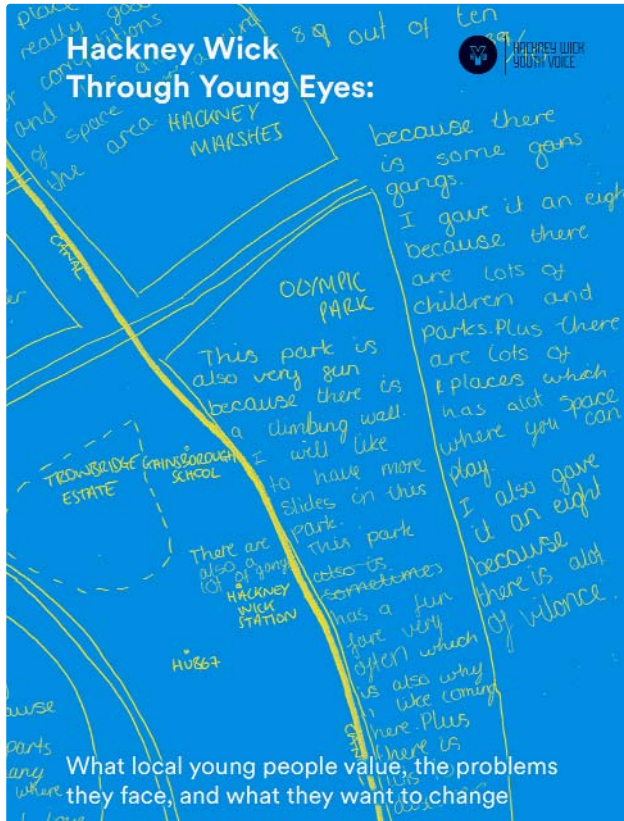 place
really good
for competitions
and
of space
the area.
8 out of ten
Hackney Wick
Through Young Eyes:
HACKNEY WICK
YOUTH VOICE
HACKNEY
MARSHES
CANAL
because there
is some gans
gangs.
I gave it an eight
because there
are lots of
children and
parks. Plus there
are lots of
places which
has alot space
where you can
play.
I also gave
it an eight
because
there is alot
of vilonce.
OLYMPIC
PARK
This park is
also very fun
because there is
a climbing wall.
I will like
to have more
slides in this
park.
This park
also is
sometimes
has a fun
fare very
often which
is also why
I like coming
here. Plus
there is
TROWBRIDGE
ESTATE
GAINSBOROUGH
SCHOOL
There are
also a
lot of gangs
HACKNEY
WICK
STATION
HU867
CAN
parts
any
where
What local young people value, the problems
they face, and what they want to change